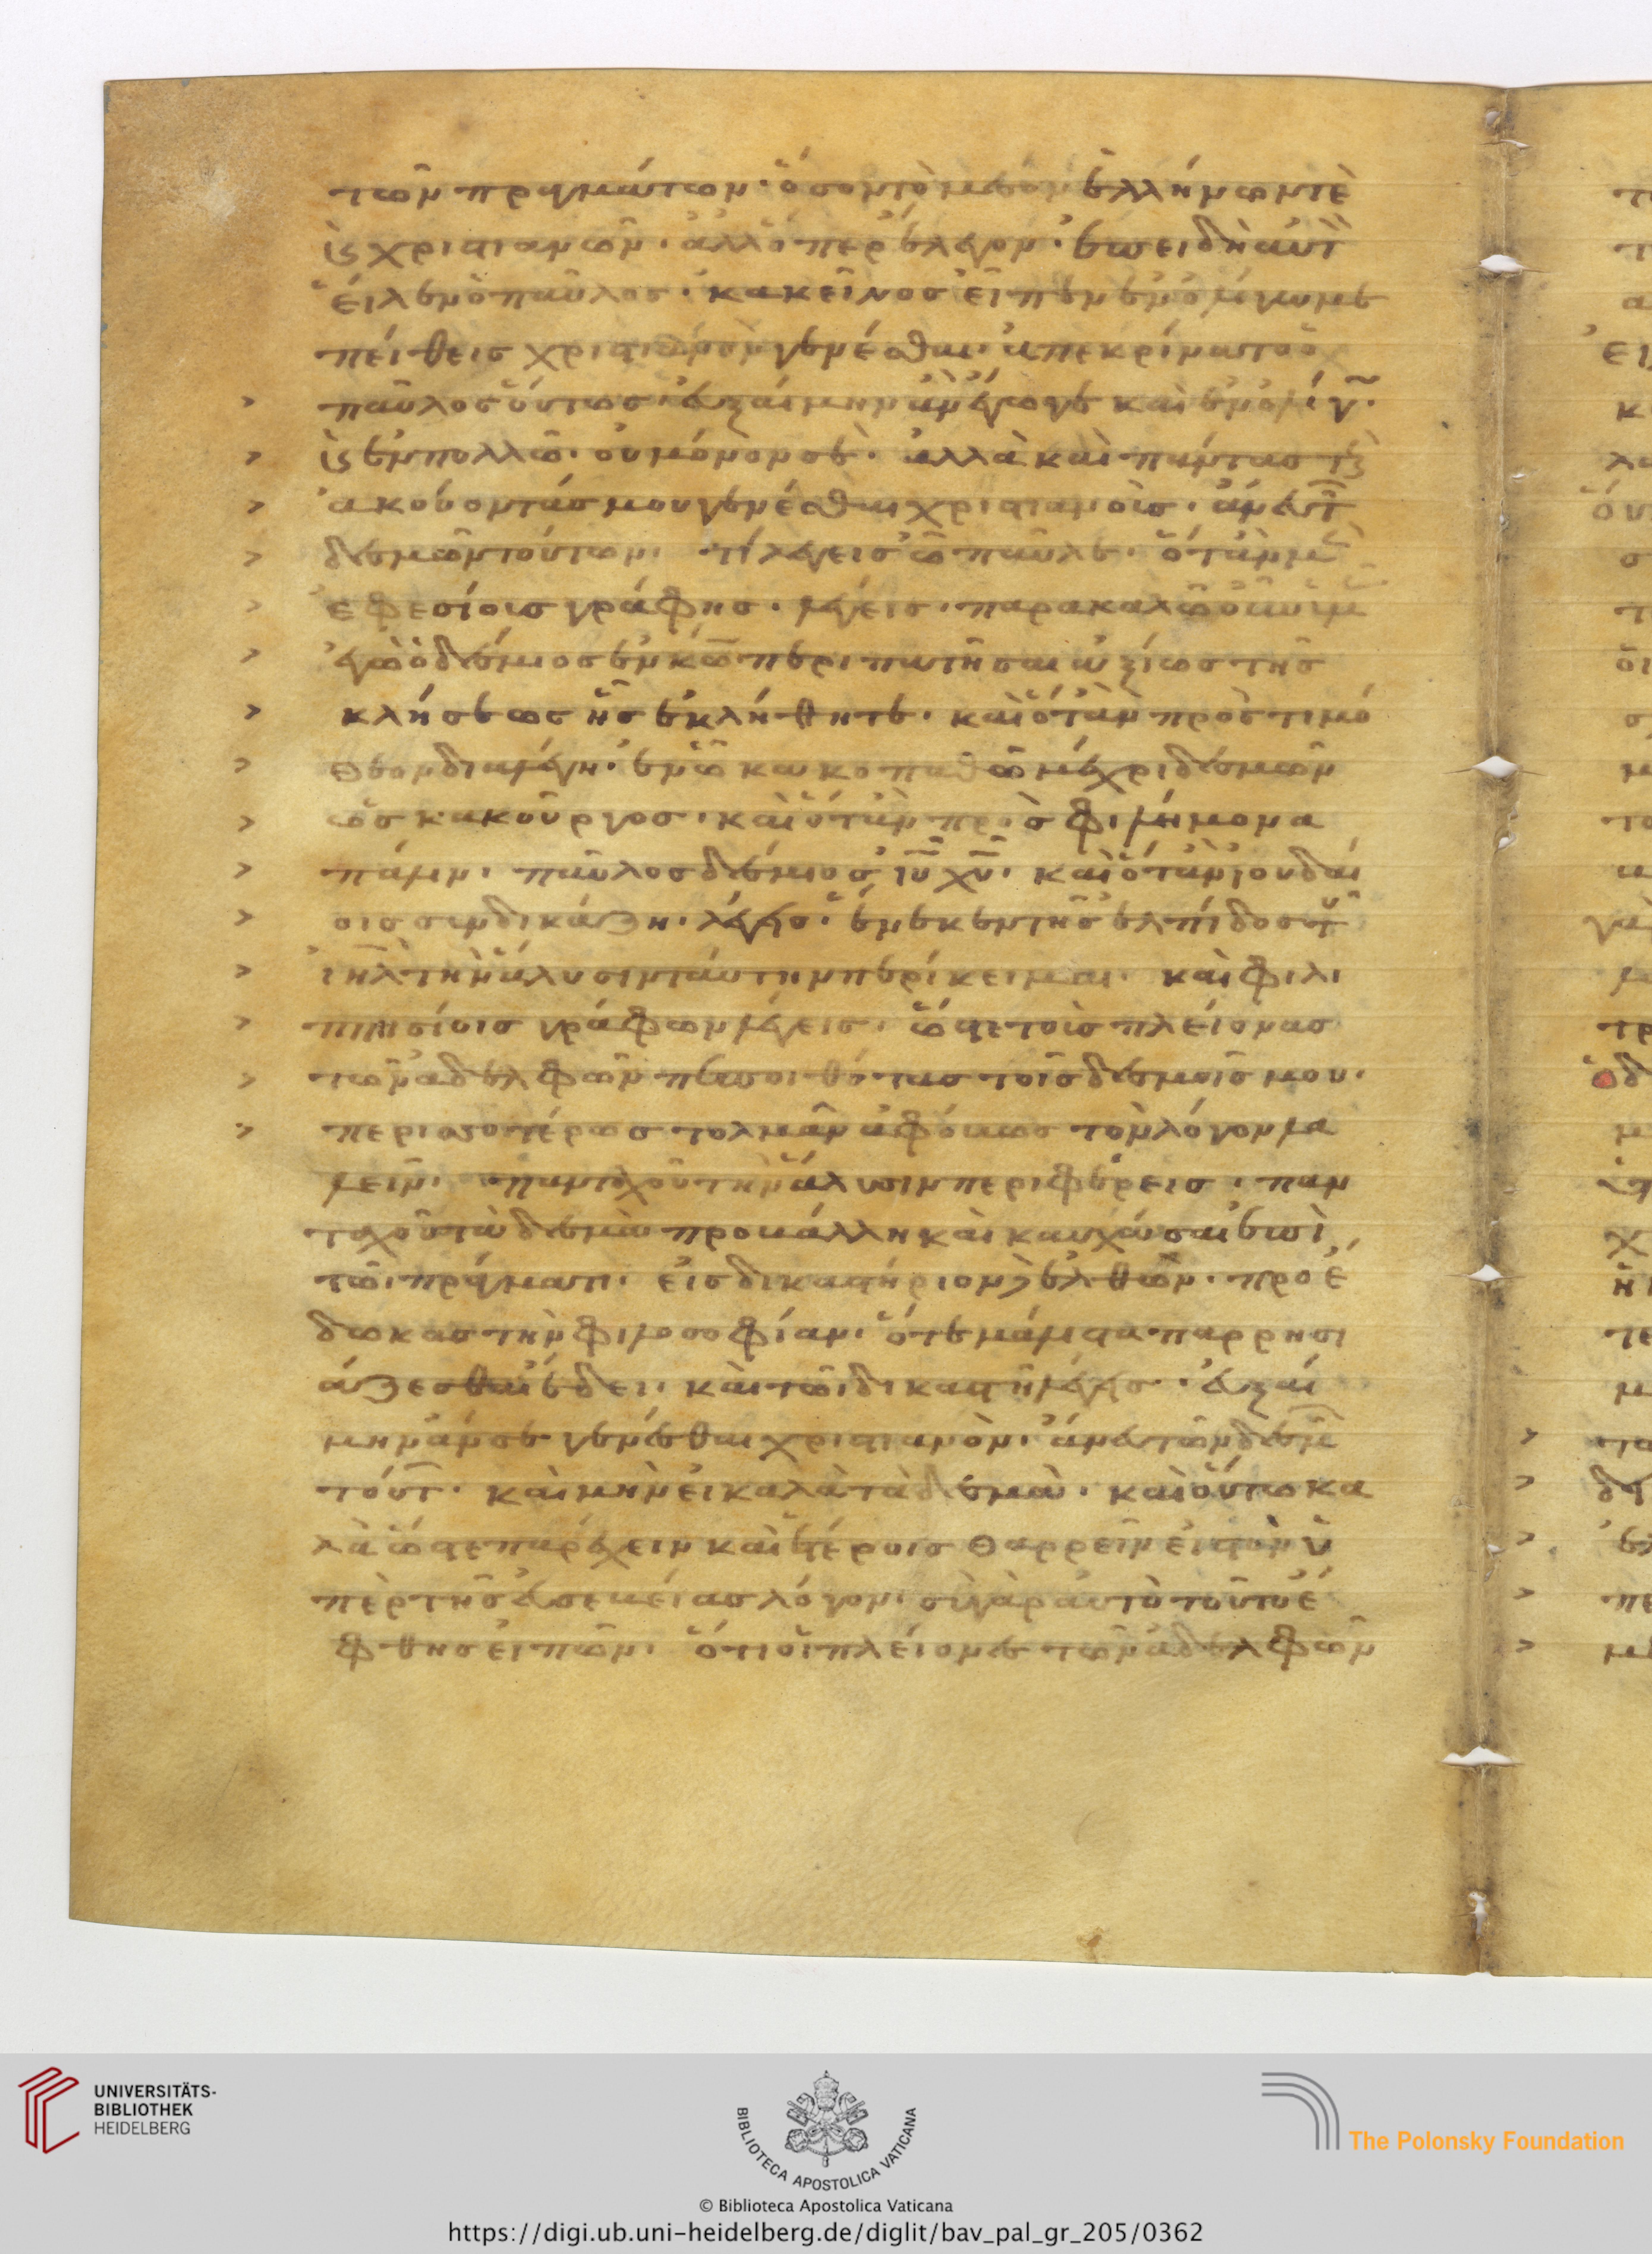 τῶν πραγμάτων· ὅσον τὸ μέσον ἑλλήνων τὲ
κ(αὶ) χριστιανῶν· ἀλλ ὅπερ ἔλεγον· ἐπειδὴ αὐτ
εἷλεν ὁ παῦλος· κἀκεῖνος εἶπεν ἐν ὀλίγω με
πείθεις χριστιανὸν γενέσθαι· ἀπεκρίνατο ὁ
παῦλος οὕτως· εὐξαίμην ἂν ἔγωγε καὶ ἐν ὀλίγ·
κ(αὶ) ἐν πολλῶ· οὐ μόνον σὲ· ἀλλὰ καὶ πάντας τ
ἀκούοντάς μου γενέσθαι χριστιανοὺς· ἄνευ τ
δεσμῶν τούτων· τί λέγεις ὦ παῦλε· ὅταν μ
ἐφεσίοις γράφης· λέγεις· παρακαλῶ οὖν ὑμ
ἐγὼ ὁ δέσμιος ἐν κω περιπατῆσαι ἀξίως τῆς
κλήσεως ἧς ἐκλήθητε· καὶ ὅταν πρὸς τιμό
θεον διαλέγη· ἐν ὧ κακοπαθῶ μέχρι δεσμῶν
ὡς κακοῦργος· καὶ ὅταν πρὸς φιλήμονα
πάλιν· παῦλος δέσμιος ιυ χυ· καὶ ὅταν ἰουδαί
οις συνδικάζη· λέγης· ἕνεκεν τῆς ἐλπίδος τ
ιηλ τὴν ἅλυσιν ταύτην περίκειμαι· καὶ φιλι
ππισίοις γράφων λέγεις· ὥστε τοὺς πλείονας
τῶν ἀδελφῶν πεποιθότας τοῖς δεσμοῖς μου·
περισσοτέρως τολμᾶν ἀφόβως τὸν λόγον λα
λεῖν· πανταχοῦ τὴν ἅλυσιν περιφέρεις· παν
ταχοῦ τὰ δεσμὰ προβάλλη καὶ καυχᾶσαι ἐπὶ
τῶ πράγματι· εἰς δικαστήριον δὲ ἐλθὼν· προέ
δωκας τὴν φιλοσοφίαν· ὅτε μάλιστα παρρησι
άζεσθαι ἔδει· καὶ τῶ δικαστῆ λέγης· εὐξαί
μην ἄν σε γενέσθαι χριστιανὸν· ἄνευ τῶν δεσμ
τούτ· καὶ μὴν εἰ καλὰ τὰ δεσμὰ· καὶ οὕτω κα
λὰ ὥστε παρέχειν καὶ ἑτέροις θαρρεῖν εἰς τὸν ὑ
πὲρ τῆς εὐσεβείας λόγον· σὺ γὰρ αὐτὸ τοῦτο ἔ
φθης εἰπῶν· ὅτι οἱ πλείονες τῶν ἀδελφῶν
UNIVERSITÄTS-
BIBLIOTHEK
HEIDELBERG
BIBLIOTECA APOSTOLICA VATICANA
The Polonsky Foundation
© Biblioteca Apostolica Vaticana
https://digi.ub.uni-heidelberg.de/diglit/bav_pal_gr_205/0362